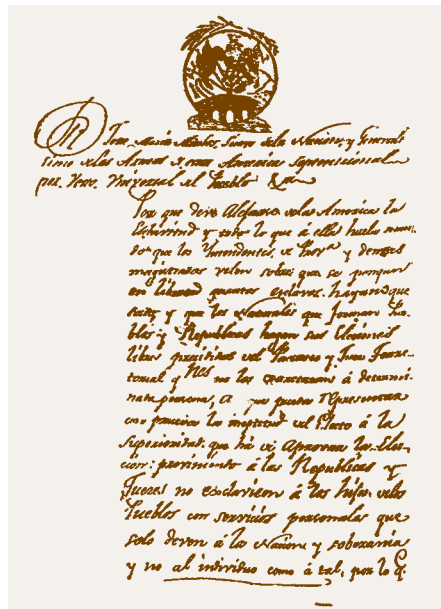 José María Morelos, Siervo de la Nacion, y Generali
simo de las Armas de esta America Septentrional
por Voto Universal del Pueblo &a.
Por que deve alejarse de la America la
Esclavitud y todo lo que á ella huela man
do que los Intendentes de Prova. y demas
magistrados velen sobre que se pongan
en libertad quantos esclavos hayan que
y que los Naturales que forman Pue
blos y Republicas hagan sus Elecciones
libres presididas del Parroco y Juez Territo
torial q no los á determi
nada persona, a que pueda representar
con prueba la ineptitud del Electo á la
Superioridad que ha de aprovar la Elec
cion: á las Republicas y
Jueces no esclavicen á los hijos de los
Pueblos con servicios personales que
solo deven á la Nacion y soberania
y no al individuo como á tal, por lo q.